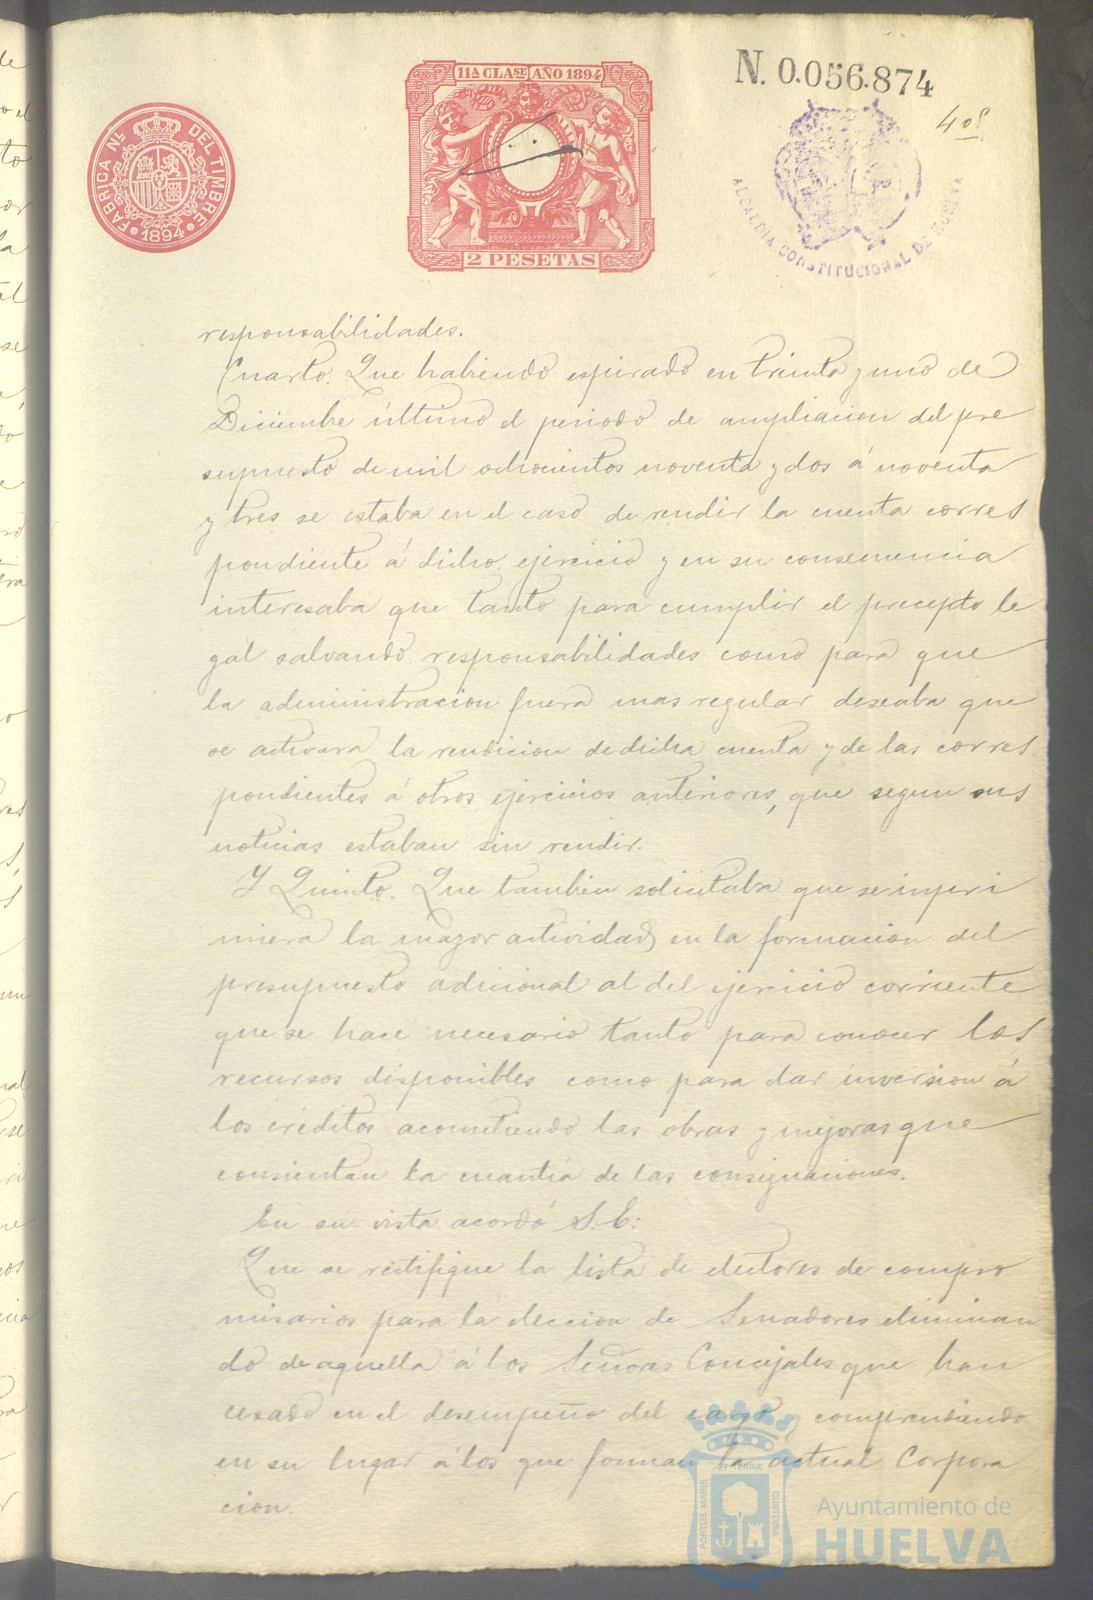 N. 0.056.874
11ª CLASE AÑO 1894
FABRICA NL DEL TIMBRE
1894
2 PESETAS
ALCALDIA CONSTITUCIONAL DE HUELVA
responsabilidades.
Cuarto. Que habiendo espirado en treinta y uno de
Diciembre último el periodo de ampliacion del pre
supuesto de mil ochocientos noventa y dos á noventa
y tres se estaba en el caso de rendir la cuenta corres
pondiente á dicho ejercicio y en su consecuencia
interesaba que tanto para cumplir el precepto le
gal salvando responsabilidades como para que
la administracion fuera mas regular deseaba que
se activara la rendicion de dicha cuenta y de las corres
pondientes á otros ejercicios anteriores, que segun sus
noticias estaban sin rendir.
Y Quinto. Que tambien solicitaba que se inpri
miera la mayor actividad en la formacion del
presupuesto adicional al del ejercicio corriente
que se hace necesario tanto para conocer los
recursos disponibles como para dar inversion á
los créditos acometiendo las obras y mejoras que
consientan la cuantia de las consignaciones.
En su vista acordó S. E:
Que se rectifique la lista de electores de compro
misarios para la eleccion de Senadores eliminan
do de aquella á los Señores Concejales que han
cesado en el desempeño del cargo y comprendiendo
en su lugar á los que forman la actual Corpora
cion.
PORTUS MARIS
ET TERRÆ
CUSTODIA
Ayuntamiento de
HUELVA